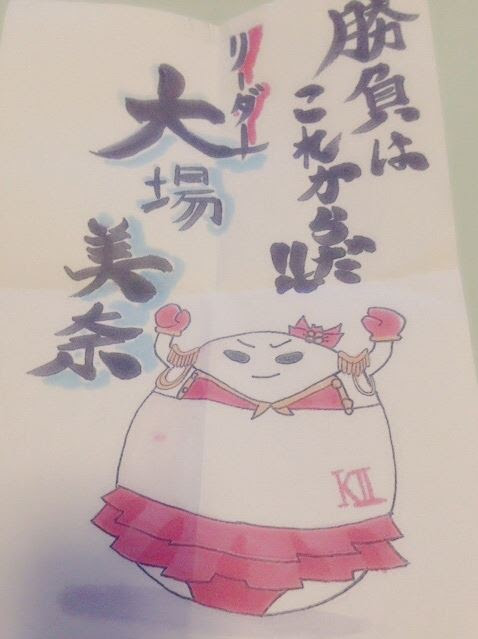 勝負は
これからだ!!
リーダー
大場
美奈
KII